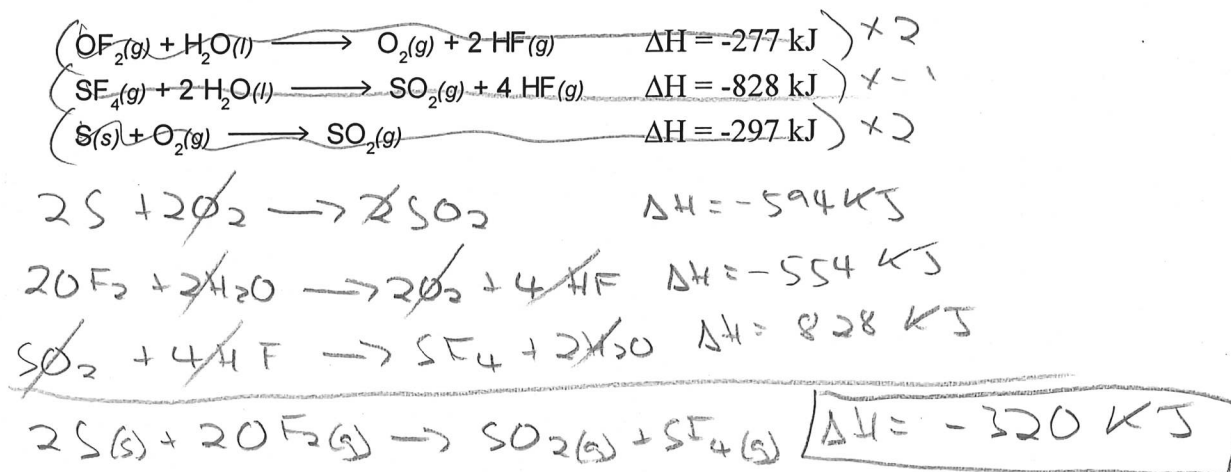 (OF₂(g) + H₂O(l) ⟶ O₂(g) + 2 HF(g) ΔH = -277 kJ) × 2
(SF₄(g) + 2 H₂O(l) ⟶ SO₂(g) + 4 HF(g) ΔH = -828 kJ) × -1
(S(s) + O₂(g) ⟶ SO₂(g) ΔH = -297 kJ) × 2
2S + 2O₂ ⟶ 2SO₂ ΔH = -594 KJ
2OF₂ + 2H₂O ⟶ 2O₂ + 4HF ΔH = -554 KJ
SO₂ + 4HF ⟶ SF₄ + 2H₂O ΔH = 828 KJ
2S(s) + 2OF₂(g) ⟶ SO₂(g) + SF₄(g) ΔH = -320 KJ